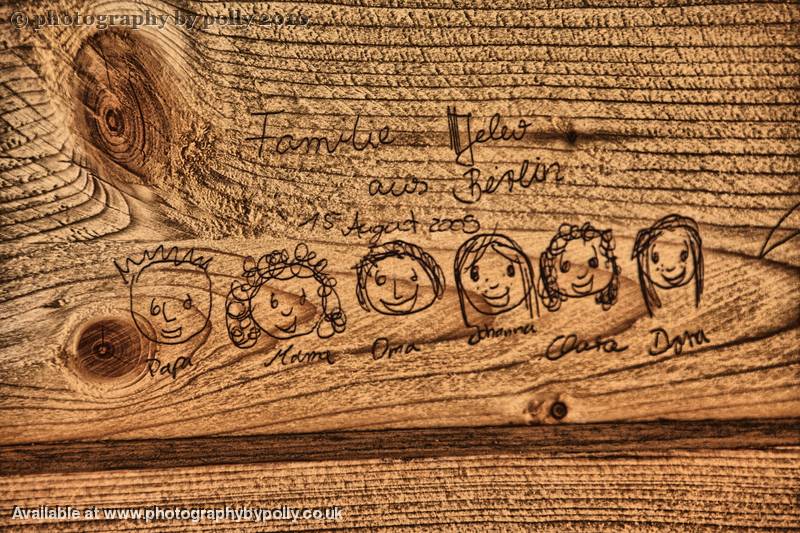 © photography by polly
Familie
aus Berlin
15 August 2009
Papa Mama Oma Johanna Clara Dora
Available at www.photographybypolly.co.uk